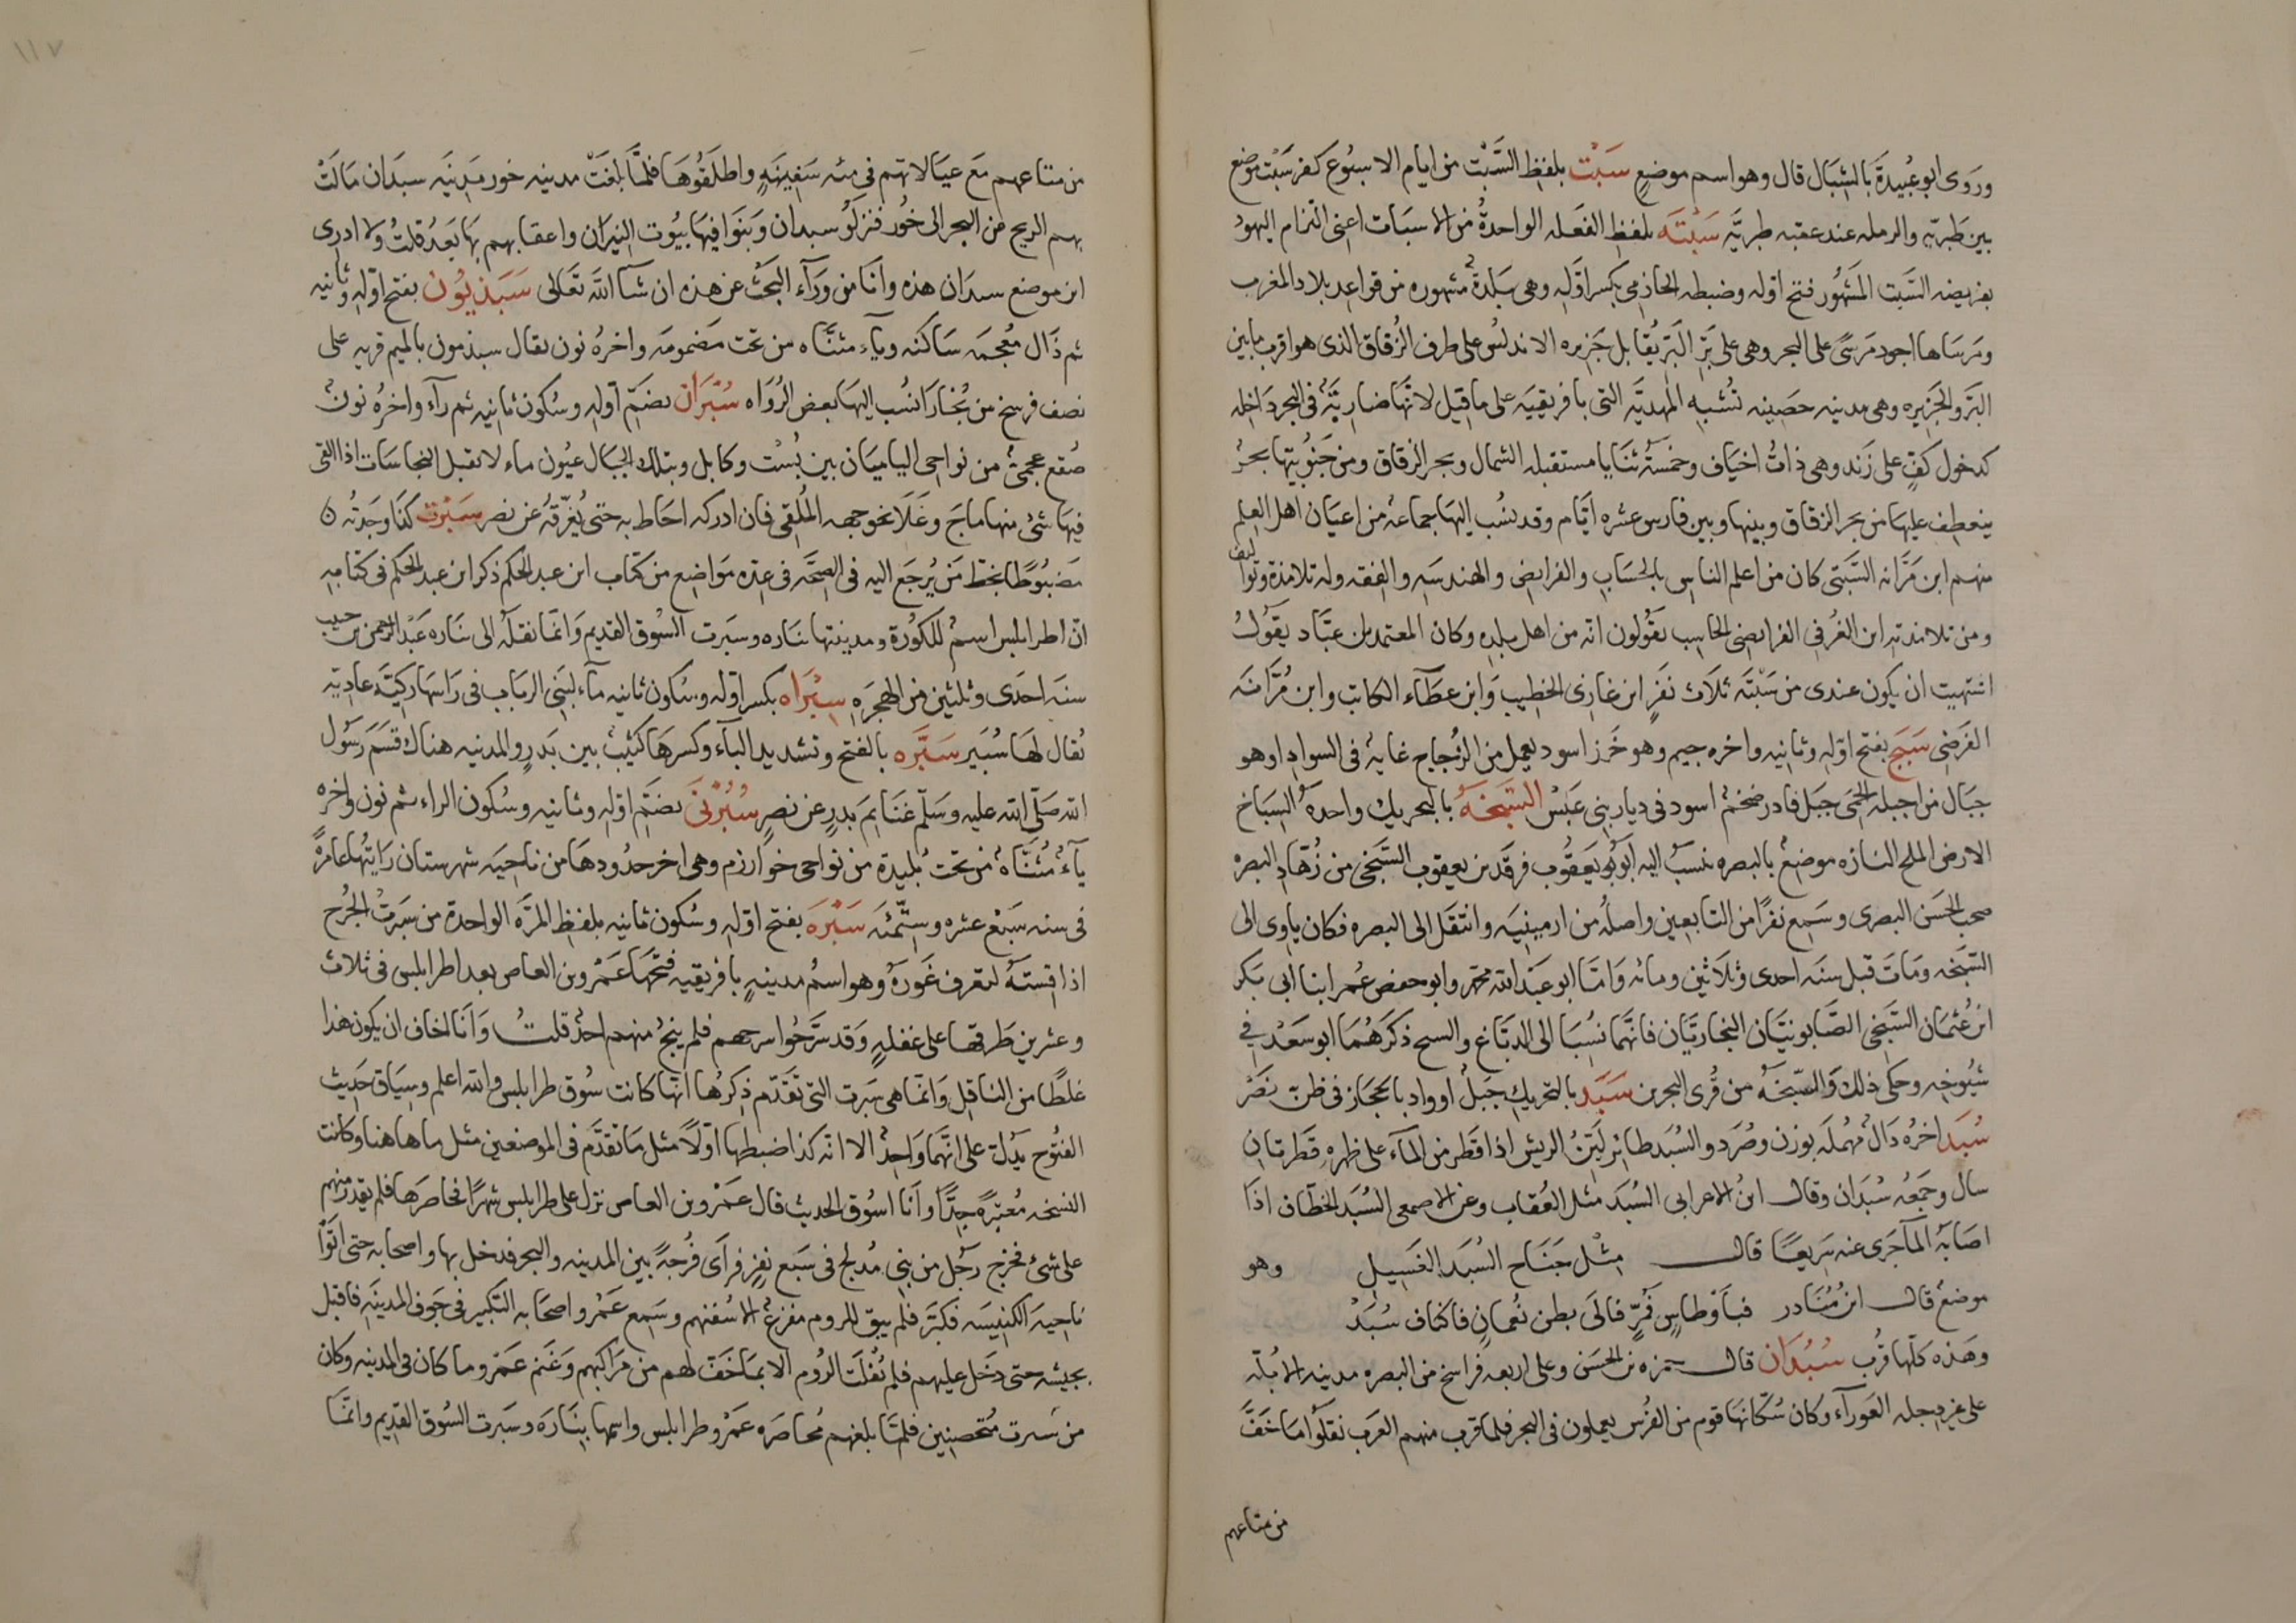 وروى ابو عبيدة بالشبال قال وهو اسم موضع سَبْت بلفظ السَّبْت من ايام الاسبوع كفر سَبْت موضع
بين طبريه والرمله عند عقبه طبريّه سَبْتَه بلفظ الفَعله الواحدةُ من الاسبَات اعنى التزام اليهود
بفريضه السَّبت المشهور فتح اوله وضبطه الحازمى بكسر اوّله وهى بَلدةٌ مشهوره من قواعد بلاد المغرب
ومَرساها اجود مَرسًى على البحر وهى على بَرّ البَربر يُقابل جَزيره الاندلس على طرف الزُقاق الذى هو اقرب ما بين
البَرّ والجَزيره وهى مدينه حصَينه تُشبه المهديَّه التى بافريقيَه على ما قيل لانَّها ضاربَةٌ فى البحر دَاخله
كدخول كفّ على زَند وهى ذاتُ اخيَاف وخمسَةُ ثنَايا مستقبله الشمال وبحر الزقاق ومن جَنوبيّها بحرٌ
ينعطف عليها من بحر الزقاق وبينها وبين فارس عشره ايَّام وقد نسُب اليها جماعه من اعيَان اهل العلم
منهم ابن مَرَّانه السَّبتى كان من اعلم الناس بالحسَاب والفرايض والهندسَه والفقه وله تلامذة وتواليف
ومن تلامذته ابن الغُرفى الفرايضى الحاسب يقَولون انّه من اهل بلده وكان المعتمد بن عبَّاد يقَولُ
اشتهيت ان يكون عندى من سَبْتَه ثلاث نَفَرٍ ابن غازى الخطيب وَابن عطَآء الكاتب وابن مُرَّانَه
الفرَضى سَبَج بفتح اوّله وثانيه واخره جيم وهو خَرز اسود يعمل من الزُجاج غايةٌ فى السواد وهو
جبَال من اجبله الحَمَى جبَل فادر ضخم اسود فى ديار بنى عَبْس السَّبَخَهُ بالتحريك واحدَهُ السِبَاخ
الارض الملح النازه موضعٌ بالبصره ينسَبُ اليه ابو يَعقُوب فرقَد بن يعقوب السَّبَخى من زُهّاد البصره
صحب الحسَن البصرى وسَمِع نفَرًا من التابعين واصلُه من ارمينيَه وانتقَل الى البصره فكان ياوى الى
السَّبَخه ومَاتَ قبل سنَه احدى وثلاثين ومائه وَامّا ابو عَبْد الله محمّد وابو حفص عُمر ابنا ابى بَكر
ابن عُثمان السَّبَخى الصَّابونيَّان البخاريَّان فانّهما نسُبَا الى الدبّاغ والسبح ذكرَهُمَا ابو سَعْد فى
شيُوخه وحكى ذلك وَالسَّبخَهُ من قُرى البحرين سَبَد بالتحريك جَبَلٌ او واد بالحجَاز فى ظنّ نَصْر
سُبَد اخرُه دَالٌ مُهمَله بوزن وصُرَد والسُبَد طائر لَيِّنُ الريش اذا قطَر من المآء على ظهره قَطرتان
سال وجَمعُه سُبْدَان وقال ابنُ الاعرابى السُبَد مثل العُقاب وعن الاصمعى السُبَد الخطّاف اذَا
اصَابهُ المآ جَرى عنه سَريعًا قال مثْل جَنَاح السُبَد الغَسِيل وهو
موضعٌ قال ابنُ مُنَادر فبَاَوْطاسٍ فَمُرٍّ فالَى بطن نُعمانٍ فاكناف سُبَدْ
وهَذه كلّها قرُب سُبُذان قال حمزه بن الحسَن وعلى اربعه فراسخ من البصره مدينه الابُلّه
على عبر دجله العَورآء وكان سُكّانُها قوم من الفُرس يعملون فى البحر فلما قرب منهم العَرب نقلَوا مَا خَفَّ
من متاعهم
١١٧
من متاعهم مَعَ عيَالاتهم فى مئه سَفِينَةٍ واطلَقُوهَا فلمَّا بلغَتْ مدينه خور مَدِنيَه سبدَان مَالَتْ
بهم الريح من البحر الى خُور فنزلَوُ سبدان وَبَنَوا فيها بيُوت النيرَان واعقابهم بهَا بَعدُ قلتُ ولا ادرى
اين موضع سبدَان هذه وانَا من وَرَآء البَحث عن هذه ان شآ اللهَ تعَالى سَبَذْيُون بفتح اوّله وثانيه
ثم ذَال مُعْجمَه سَاكنه ويآء مثنَّاه من تحت مَضمومَه واخرهُ نون يقال سبذمون بالميم قريه على
نصف فرسخ من بُخارَا نسُب اليهَا بعض الرُوَاه سُبْرَان بضَمّ اوله وسُكون ثانيه ثم رآء واخرُه نونٌ
صُقع عجمىّ من نواحى الباميَان بين بُسْت وكابل وبتلك الجبَال عيُون ماء لا تقبل النجاسَات اذا القى
فيهَا شئ منها ماجَ وغَلَا نحو جهه المُلقى فان ادركه احَاط به حتى يُغرّقهُ عن نصر سَبَرْت كذَا وجَدتُه
مَضبُوطًا بخط مَن يُرجَع اليه فى الصحَّه فى عدّه مَواضع من كتَاب ابن عبد الحكم ذكر ابن عبد الحكم فى كتَابه
انّ اطرابلس اسمٌ للكورَة ومدينتها نبَاره وسبَرت السُوق القديم وَانمَّا نقلَهُ الى نبَاره عَبْد الرحمن بن حبيب
سنَه احدَى وثلثين من الهجرَه سِبْرَاه بكسر اوّله وسُكون ثانيه مآء لبَنى الربَاب فى رَاسَها ركيّة عاديّه
يُقال لهَا سُبَير سَبَّره بالفتح وتشديد البآء وكسرهَا كثيبٌ بين بَدرٍ والمدينه هناك قسَمَ رسُول
الله صَلّى الله عليه وسَلّم غنَايمَ بَدرٍ عن نصرٍ سُبُرْنَى بضَمّ اوّله وثانيه وسُكون الراء ثم نون واخره
يآءٌ مُثَنَّاهٌ من تحت بُليدة من نواحى خوَارزم وهى اخر حدُودهَا من ناحيَه شهرستان رَايتُها عامرَةً
فى سنه سَبْع عشره وسِتّمئَه سَبْرَه بفتح اوّله وسُكون ثانيه بلفظ المرّه الواحدة من سَبَرتُ الجُرح
اذا قستَهُ لتعرف غَورَهُ وهو اسمُ مدينةٍ بافريقيه فتَحها عَمْرو بن العاص بعد اطرابلس فى ثلاث
وعشرين طَرقَها على غفلةٍ وَقد سَرَّحُوا سرحهم فلم ينجُ منهم احدٌ قلتُ وَانَا اخاف ان يكون هذا
غلطًا من الناقل وَانمّا هى سَبَرت التى تَقدَّم ذِكرُها انّها كانت سُوق طرابلس والله اعلم وسيَاق حَديث
الفتُوح يَدُلّ على انّهَّمَا وَاحِدٌ الا انّه كذا ضبطها اوّلاً مثل مَا تقدَّم فى الموضعين مثل ما هاهنا وكانت
النسخه مُعتبَرهً جدًّا وانَا اسُوق الحديث قال عمَرْو بن العاص نزل على طرابلس شهرًا فحَاصرَهَا فلم يقدر منهم
على شئ فخرج رجَُل من بنى مُدلج فى سَبع نفَرٍ فرَاَى فُرجةً بين المدينه والبحر فدخل بها واصحابه حتى اتَوْا
نَاحيَه الكنيسَه فكبَّر فلم يبق للروم مفزعٌ الا سُفنهم وسَمع عَمْرو واصحَابه التكبير فى جَوف المدينَه فاقبل
بجيشه حتى دخَل عليهم فلم تُفْلَت الرُوم الا بمَا خَفّ لهم من مَرَاكبهم وَغَنم عَمْرو ما كان فى المدينه وكان
من بسَبرت مُتحصنين فلمَّا بلغهم مُحاصَره عَمْرو طرابلس واسمها نبَارَه وسَبَرت السُوق القديم وانمَّا